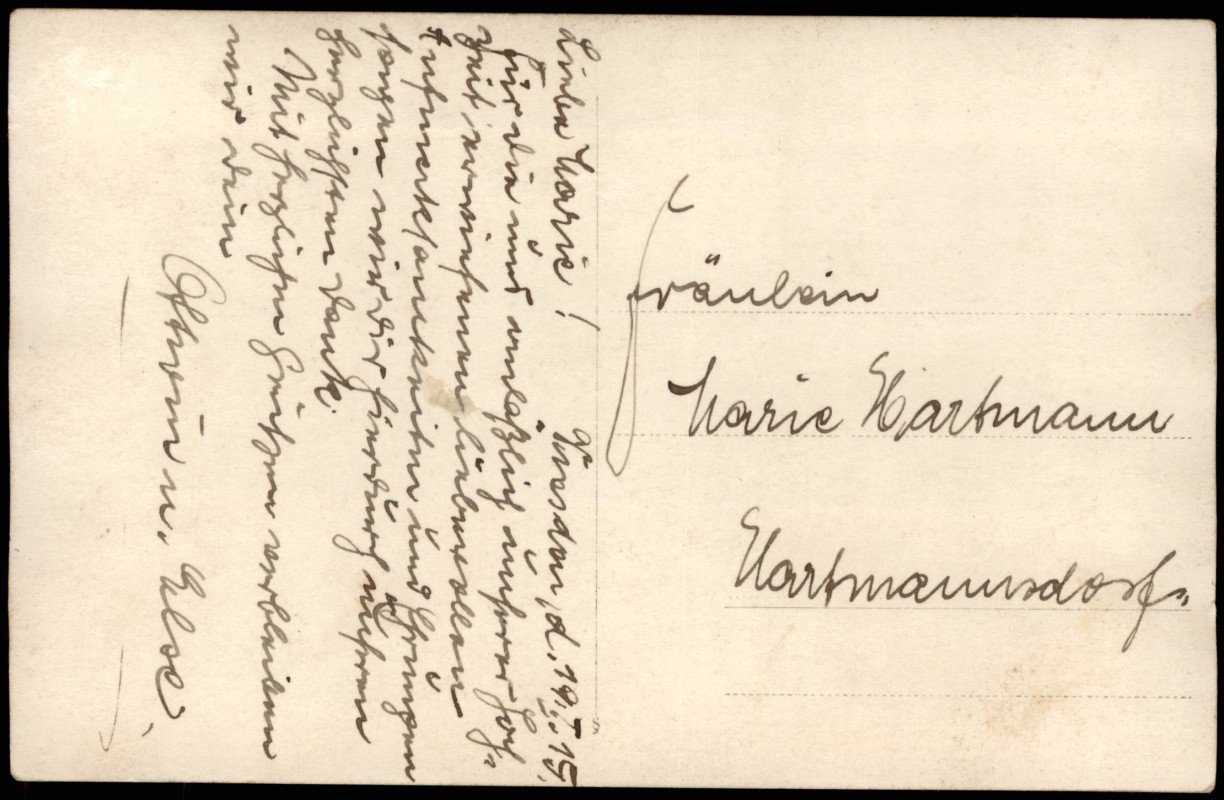 Liebe Marie!
Dresden, d. 19. I. 15.
Für die uns anläßlich unserer Hoch-
zeit erwiesenen liebevollen
Aufmerksamkeiten und Ehrungen
sagen wir dir hierdurch unseren
herzlichsten Dank.
Mit herzlichen Grüßen verbleiben
wir deine
u. Else
Fräulein
Marie Hartmann
Hartmannsdorf